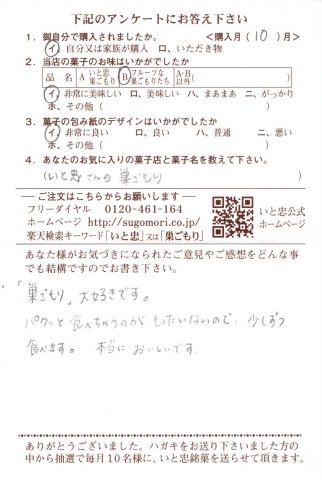 下記のアンケートにお答え下さい
1. 御自分で購入されましたか。 <購入月( 10 )月>
イ、自分又は家族が購入 ロ、いただき物
2. 当店の菓子のお味はいかがでしたか
品 名 A いと忠巣ごもり B フルーツな巣ごもりたち A・B以外( )
イ、非常に美味しい ロ、美味しい ハ、まあまあ ニ、がっかり
ホ、その他( )
3. 菓子の包み紙のデザインはいかがでしたか
イ、非常に良い ロ、良い ハ、普通 ニ、悪い
ホ、その他( )
4. あなたのお気に入りの菓子店と菓子名を教えて下さい。
(いと忠さんの 巣ごもり )
ご注文はこちらからお願いします
フリーダイヤル 0120-461-164
ホームページ http://sugomori.co.jp/
楽天検索キーワード「いと忠」又は「巣ごもり」
いと忠公式
ホームページ
あなた様がお気づきになられたご意見やご感想をどんな事
でも結構ですのでお書き下さい。
「巣ごもり」大好きです。
パクッと食べちゃうのがもったいないので、少しずつ
食べます。 本当においしいです。
ありがとうございました。ハガキをお送り下さいました方の
中から抽選で毎月10名様に、いと忠銘菓を送らせて頂きます。